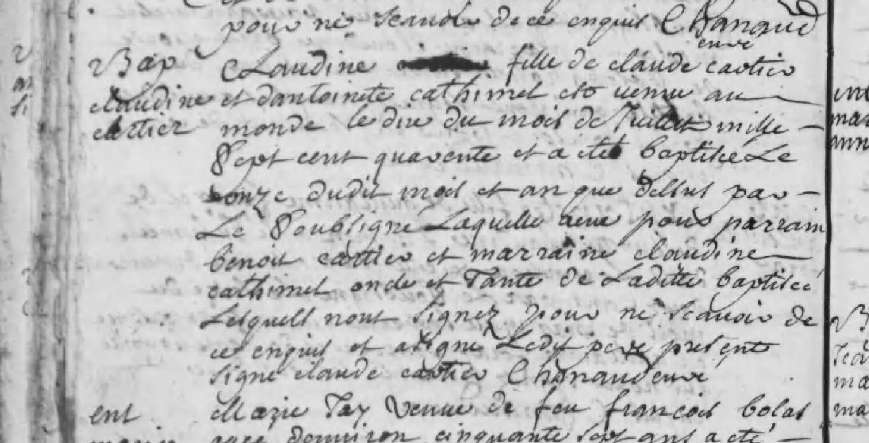 pour ne scavoir de ce enquis Chanaud
cure
Bap Claudine fille de claude cartier
claudine et dantoinette cathimel est venue au
cartier monde le dix du mois de Juillet mille
Sept cent quarente et a eté baptisée Le
onze dudit mois et an que dessus par
Le Soubsigné Laquelle a eue pour parrain
benoit cartier et marraine claudine
cathimel oncle et Tante de Laditte baptisée
Lesquels nont signez pour ne scavoir de
ce enquis et a signé Ledit pere present
signé claude cartier Chanaud cure
ent Marie Tay Venue de feu francois bolas
agee denviron cinquante sept ans a eté